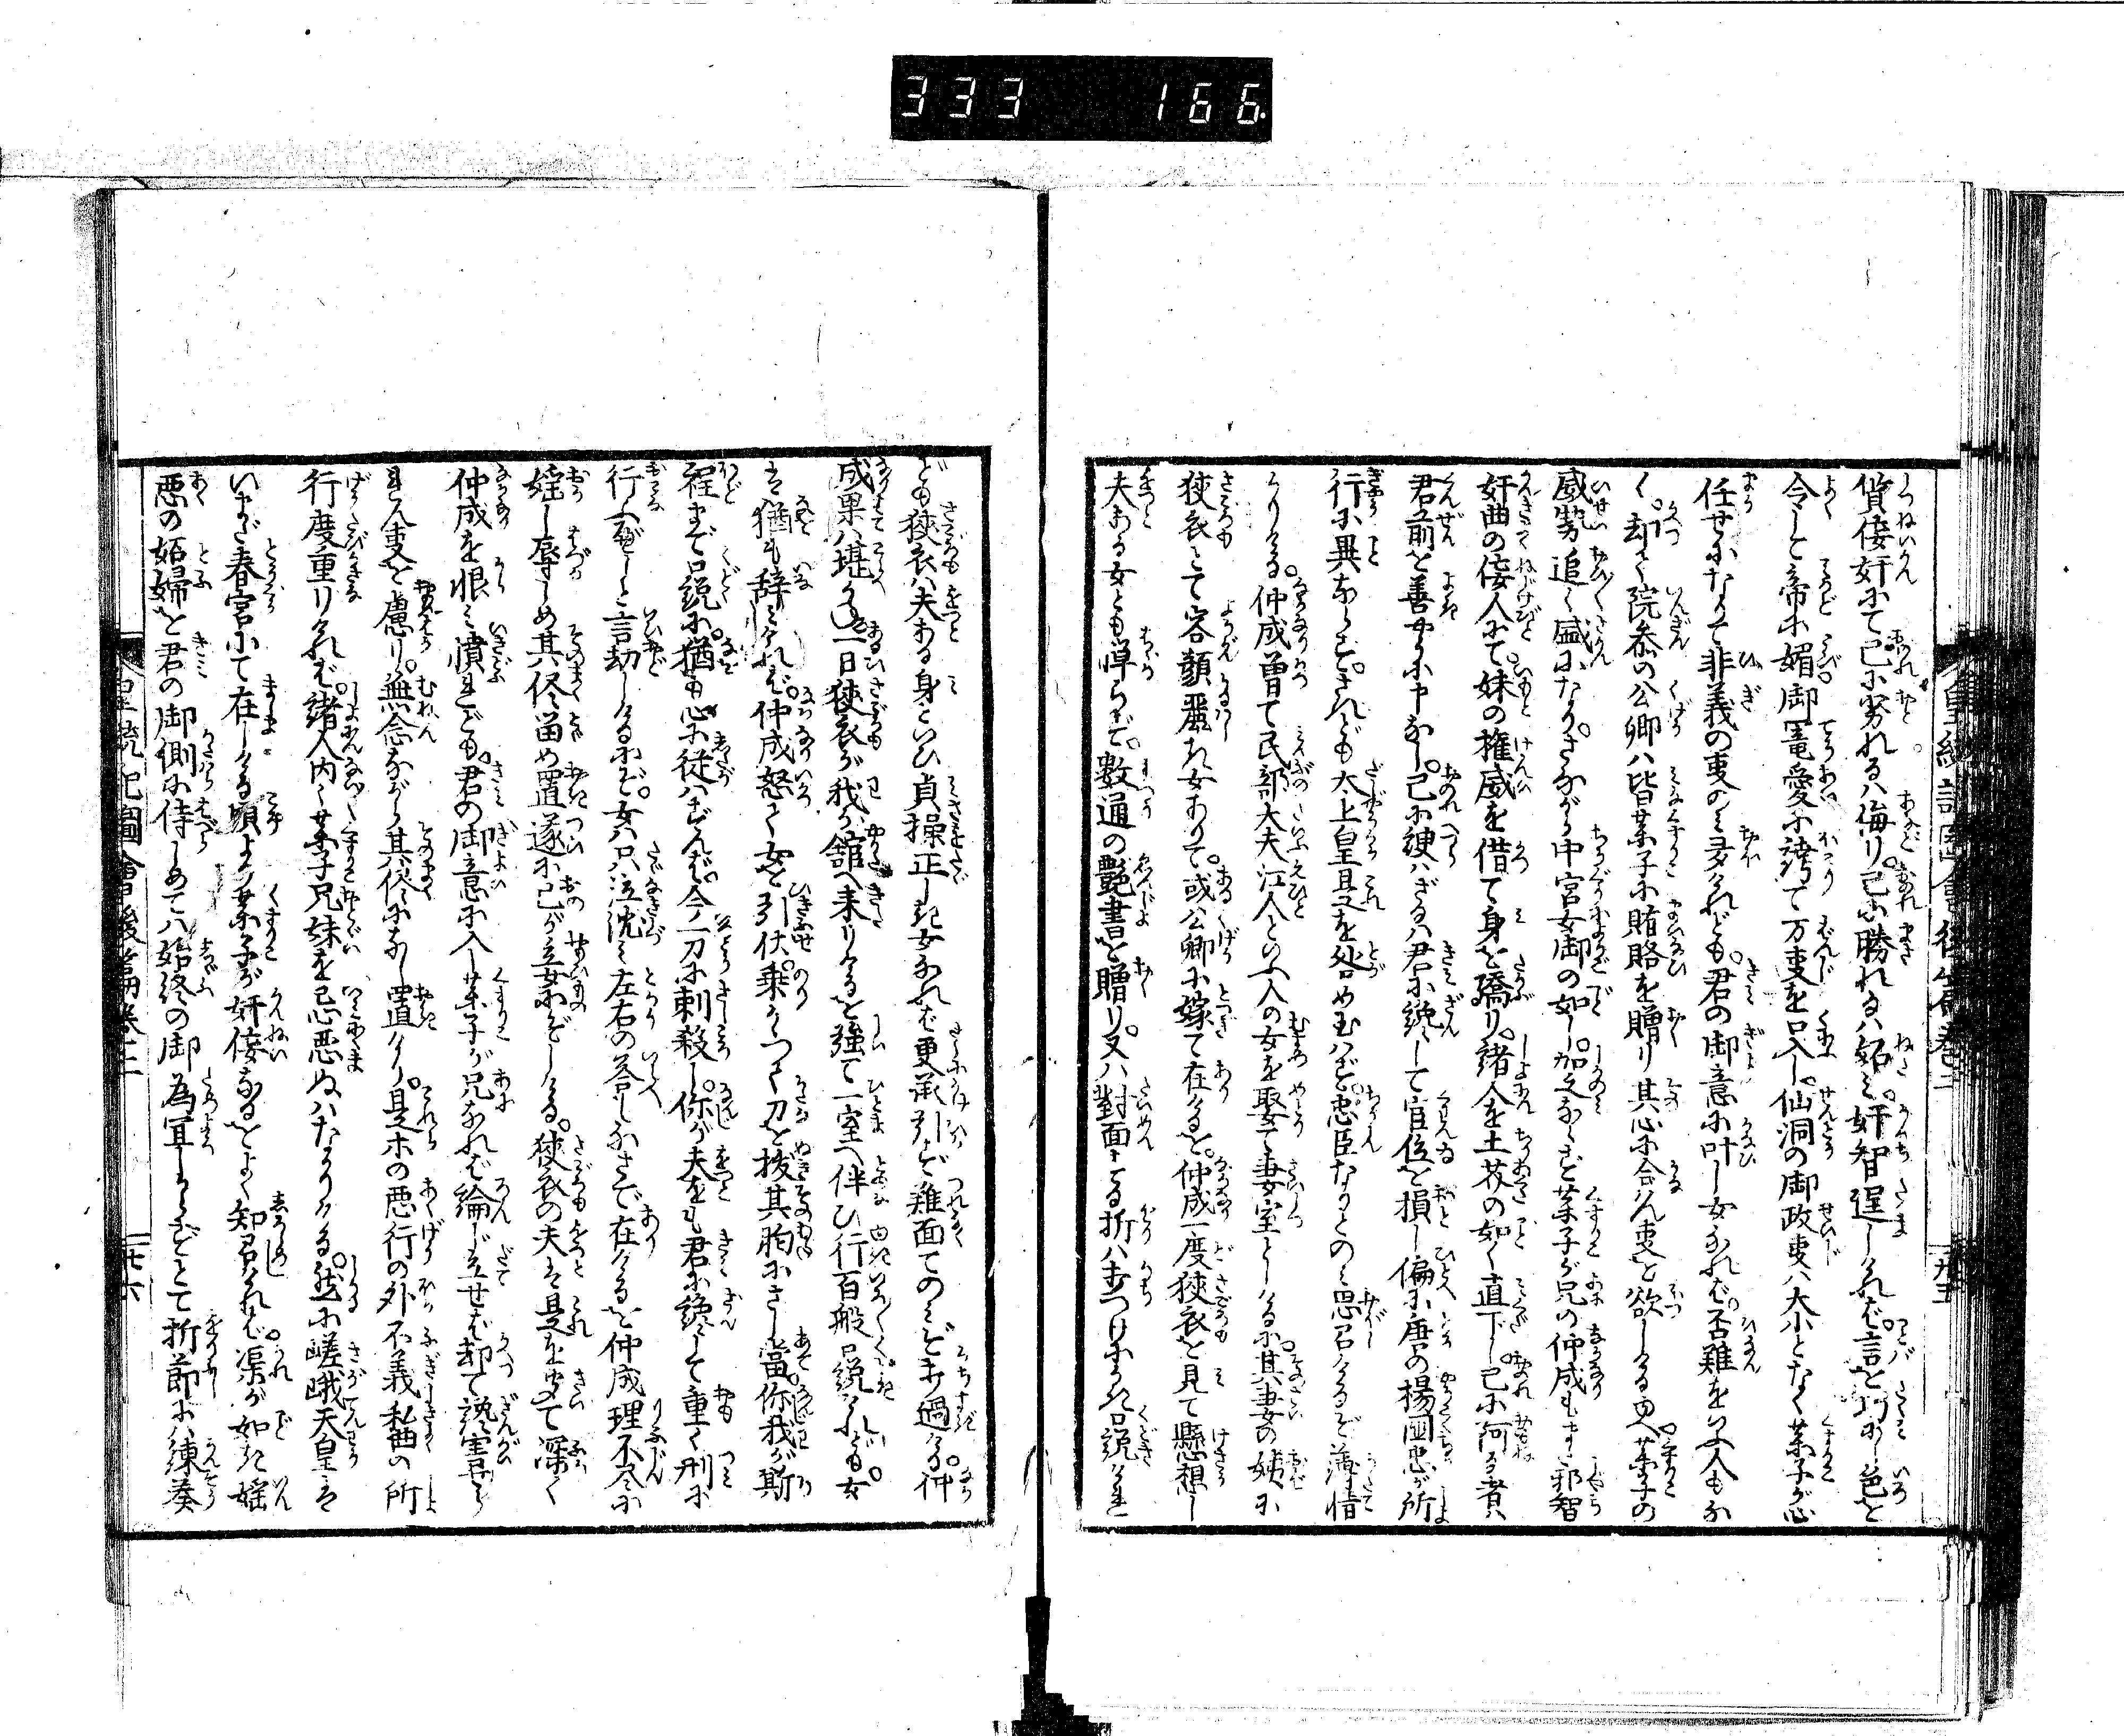 333 166.
質侫奸にて己に劣れるハ侮り。己に勝れるハ妬ミ。奸智逞しけれバ。言を巧にし色を
令して帝に媚。御寵愛に誇て万事を口入し。仙洞の御政事ハ大小となく薬子が心
任せになりて非義の事のミ多けれども。君の御意に叶し女なれバ。否難をいふ人もな
く。却て院参の公卿ハ皆薬子に賄賂を贈り其心に合ん事を欲しけるゆへ。薬子の
威勢追々盛になり。さながら中宮女御の如し。加之ならず薬子が兄の仲成もまた邪智
奸曲の侫人にて。妹の権威を借て身を驕り。諸人を土芥の如く直下し。己に阿る者ハ
君前を善やうに申なし。己に諛ハざるハ君に讒して官位を損し偏に唐の楊国忠が所
行に異ならず。されども太上皇是を咎め玉ハず。忠臣なりとのミ思召けるぞ薄情
かりける。仲成曽て民部大夫江人といふ人の女を娶て妻室としけるに。其妻の姨に
狭衣とて容顔麗き女ありて。或公卿に嫁て在けるを。仲成一度狭衣を見て懸想し
夫ある女とも憚らず。数通の艶書を贈り。又ハ対面する折ハ打つけに口説けれ
皇統記図会後篇巻二
ども狭衣ハ夫ある身といひ貞操正しき女なれバ更承引ず難面てのミぞ打過ける。仲
成果ハ堪かね一日狭衣が我館へ来りけるを強て一室へ伴ひ行百般口説けれども。女
ハ猶も辞ミけれバ。仲成怒て女を引伏。乗かゝつて刀を抜其胸にさし當。你我が斯
程まで口説に。猶も心に従ハずんバ今一刀に刺殺し。你が夫をも君に讒して重く刑に
行ふべしと言劫しけるにぞ。女ハ只泣沈ミ左右の答もなさで在けるを仲成理不尽に
婬し辱しめ其侭留め置遂に己が立女にぞしける。狭衣の夫ハ是を聞て深く
仲成を恨ミ憤れども。君の御意に入し薬子が兄なれバ論じ立せバ却て讒害せら
れん事を慮り。無念ながら其侭になし置けり。是ホの悪行の外不義私曲の所
行度重りけれバ。諸人内々薬子兄妹を忌悪ぬハなかりける。然に嵯峨天皇ハ
いまだ春宮にて在しける頃より薬子が奸侫なるをよく知召けれバ。渠が如き婬
悪の妬婦を君の御側に侍しめてハ始終の御為宜しからずとて折節にハ諌奏
皇統記図会後篇巻二 廿六